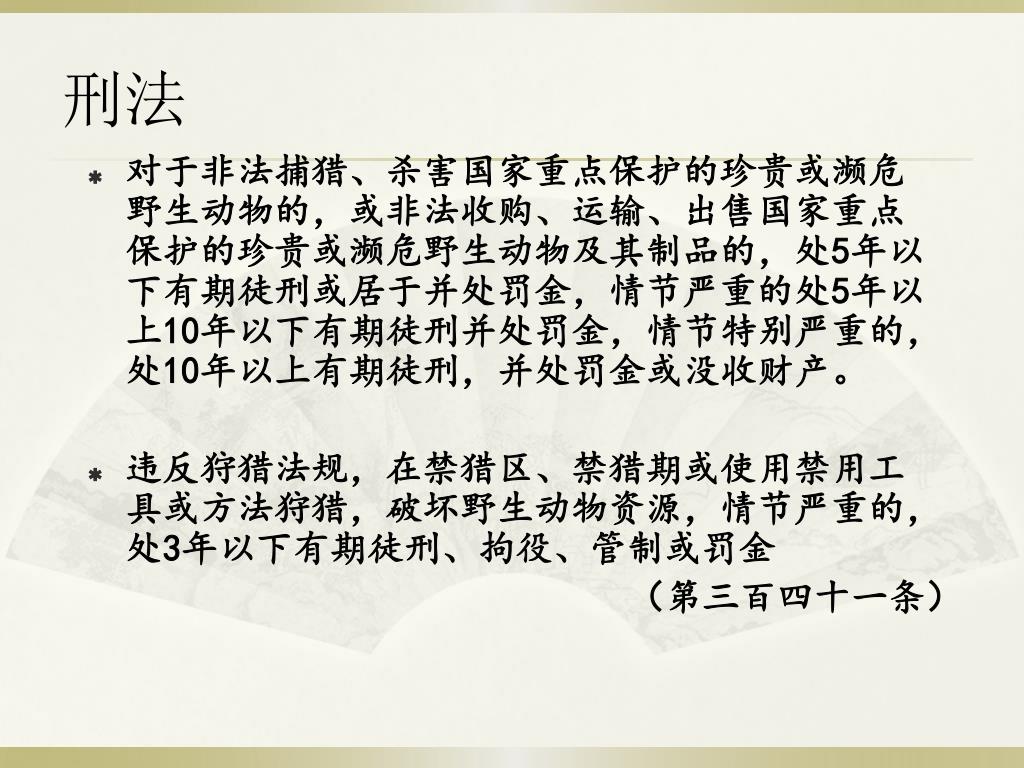 刑法
对于非法捕猎、杀害国家重点保护的珍贵或濒危
野生动物的，或非法收购、运输、出售国家重点
保护的珍贵或濒危野生动物及其制品的，处5年以
下有期徒刑或居于并处罚金，情节严重的处5年以
上10年以下有期徒刑并处罚金，情节特别严重的，
处10年以上有期徒刑，并处罚金或没收财产。
违反狩猎法规，在禁猎区、禁猎期或使用禁用工
具或方法狩猎，破坏野生动物资源，情节严重的，
处3年以下有期徒刑、拘役、管制或罚金
（第三百四十一条）